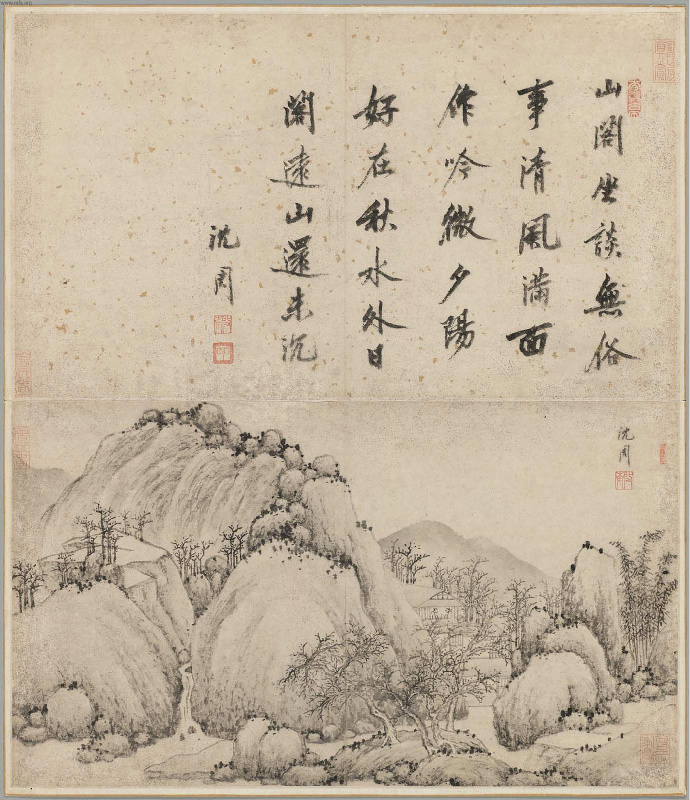 山閣坐談無俗
事清風滿面
作吟微夕陽
好在秋水外日
閣遠山還未沉
沈周
沈周
www.mfa.org